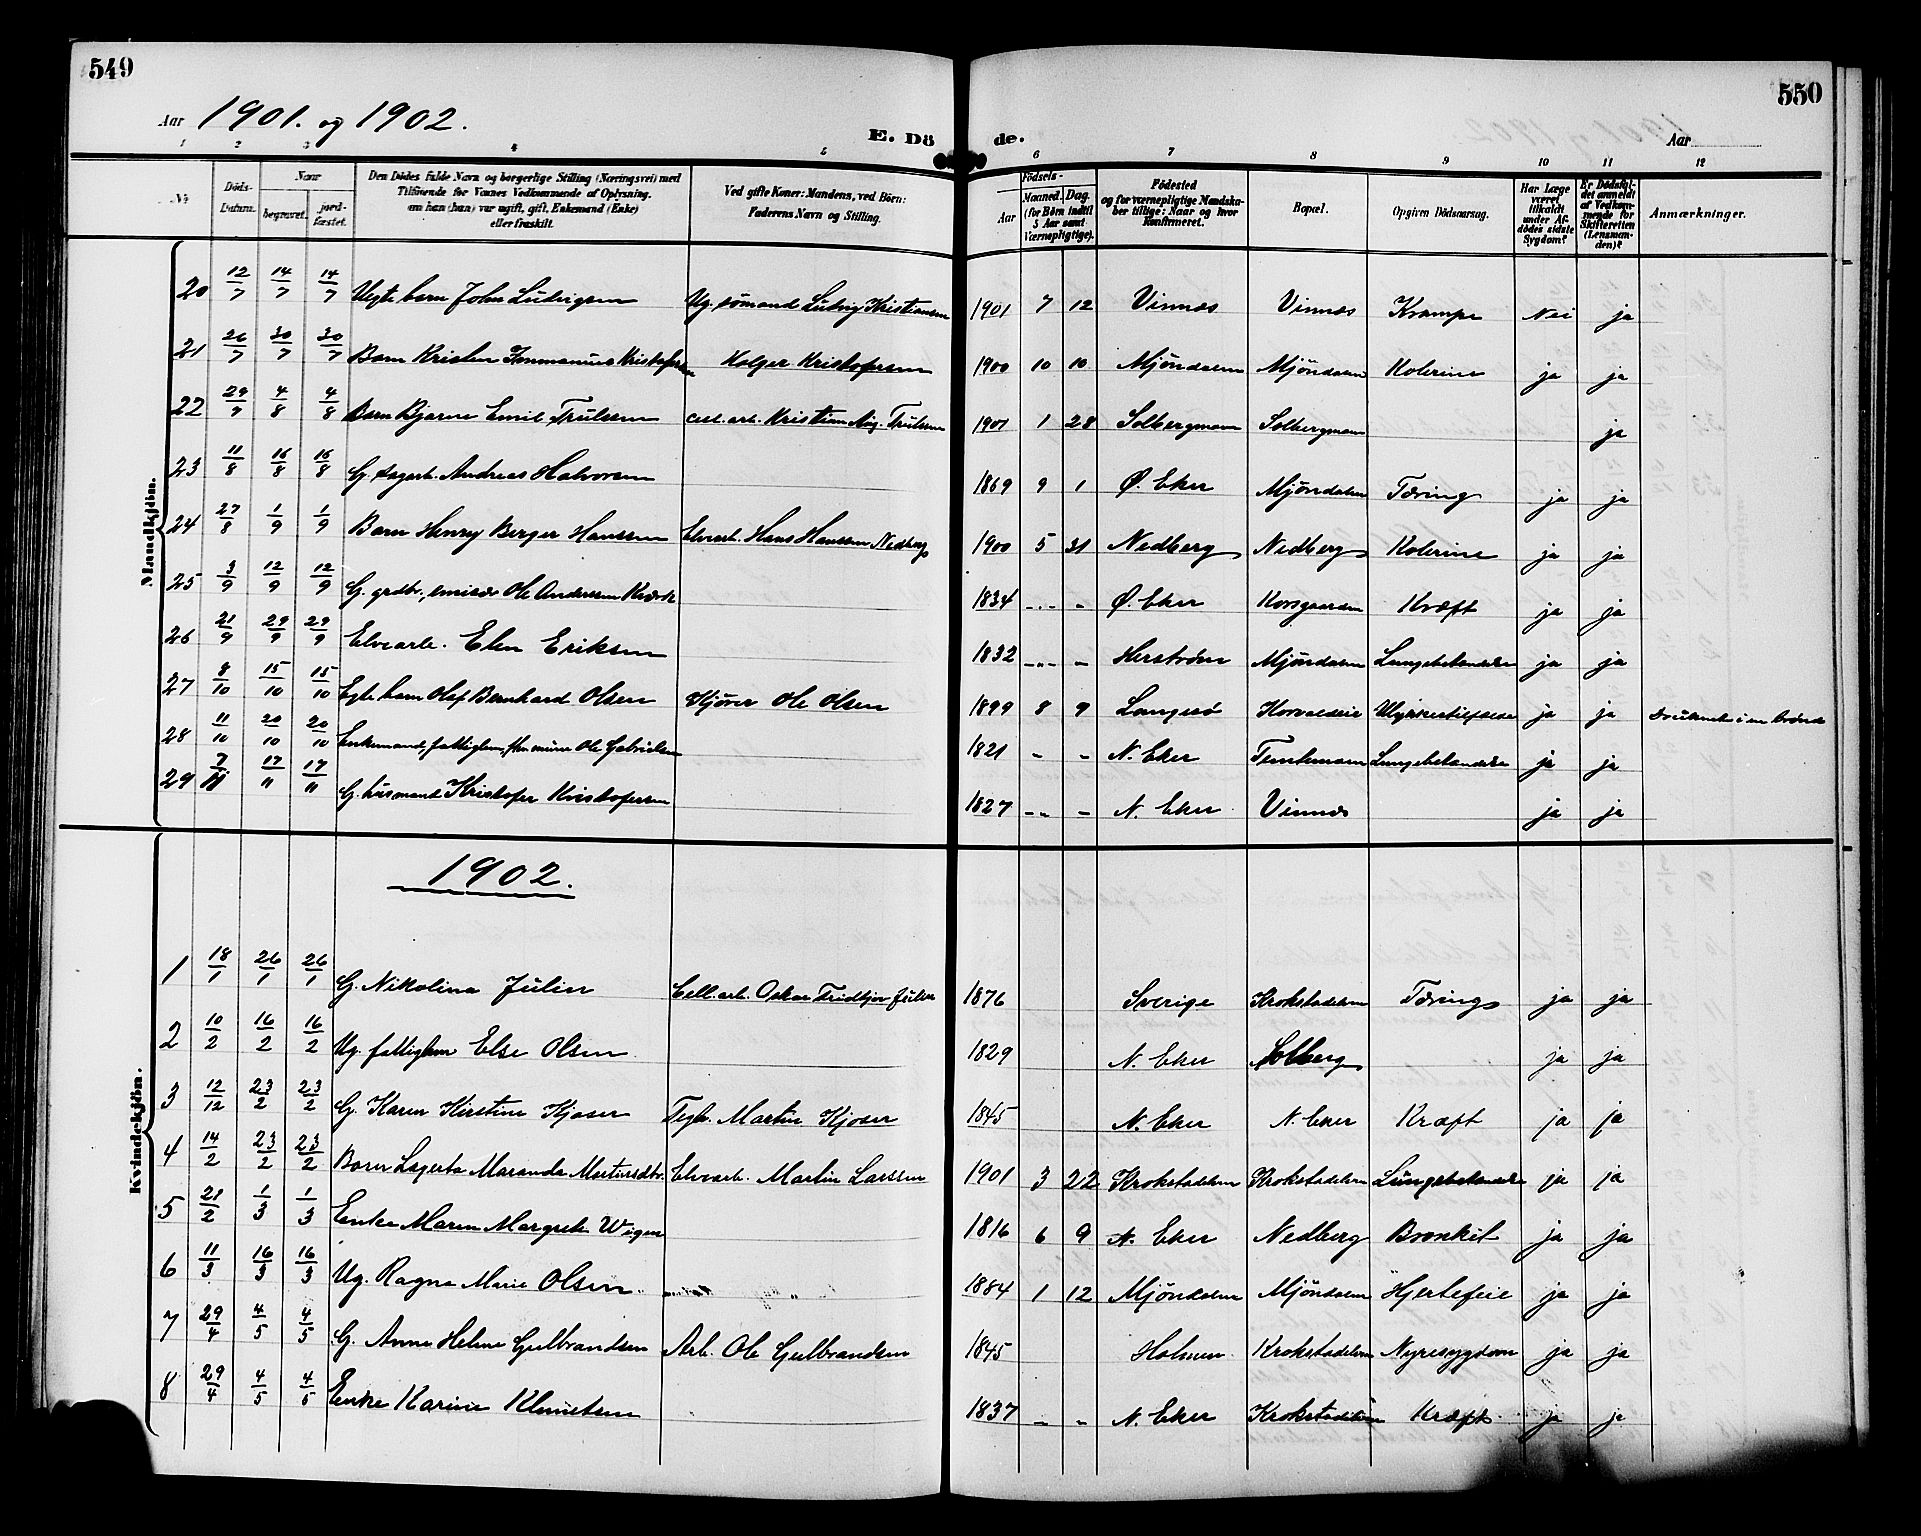 549
550
Aar 1901. og 1902.
E. Dö de.
Aar
1 2 3 4 5 6 7 8 9 10 11 12
Nr.
Döds-Datum.
Naar
begravet.
jord-fæstet.
Den Dödes fulde Navn og borgerlige Stilling (Næringsvei) med
Tilföiende for Voxnes Vedkommende af Oplysning,
om han (hun) var ugift, gift, Enkemand (Enke)
eller fraskilt.
Ved gifte Koner: Mandens, ved Börn:
Faderens Navn og Stilling.
Födsels-
Aar
Maaned. Dag.
(for Börn indtil 5 Aar samt Værnepligtige).
Födested
og for værnepligtige Mandska-
ber tillige: Naar og hvor
Konfirmeret.
Bopæl.
Opgiven Dödsaarsag.
Har Læge været tilkaldt under Afdödes sidste Sygdom?
Er Dödsfaldet anmeldt af Vedkommende for Skifteretten (Lensmanden)?
Anmærkninger.
Mandkjön.
20 12/7 14/7 14/7 Uegte barn John Ludvigsen Ug. sømand Ludvig Kristiansen 1901 7 12 Vinnæs Vinnæs Krampe Nei ja
21 26/7 30/7 30/7 Barn Kristen Immanuel Kristofersen Holger Kristofersen 1900 10 10 Mjöndalen Mjöndalen Kolerine ja ja
22 29/7 4/8 4/8 Barn Bjarne Emil Trulssen cell. arb. Kristian Aug. Trulssen 1901 1 28 Solbergmoen Solbergmoen ja
23 11/8 16/8 16/8 G. sagarb. Andreas Halvorsen 1869 9 1 Ø. Eker Mjöndalen Tæring ja ja
24 27/8 1/9 1/9 Barn Henry Berger Hanssen Elvearb. Hans Hanssen Nedberg 1900 5 31 Nedberg Nedberg Kolerine ja ja
25 3/9 12/9 12/9 G. grdbr., Ole Anderssen 1834 - - Ø. Eker Korsgaarden Kræft ja ja
26 21/9 29/9 29/9 Elvearb. Elen Eriksen 1832 - - Herstrøm Mjöndalen Lungebetændelse ja ja
27 8/10 15/10 15/10 Egte barn Olaf Bernhard Olsen Kjører Ole Olsen 1899 8 9 Langesö Horvaldseie Ulykkestilfælde ja ja Druknet i en brönd
28 11/10 20/10 20/10 Enkemand, fattiglem, Ole Gabrielsen 1821 - - N. Eker Lungebetændelse ja ja
29 7/11 17/11 17/11 G. husmand Kristofer Kristofersen 1827 - - N. Eker Vinnæs ja ja
1902.
Kvindekjön.
1 18/1 26/1 26/1 G. Nikolina Julin Cell. arb. Oskar Fridtjov Julin 1876 Sverige Krokstadelven Tæring ja ja
2 10/2 16/2 16/2 Ug. fattiglem Else Olsen 1829 N. Eker Solberg ja ja
3 12/12 23/2 23/2 G. Karen Kirstine Kjoser Teglv. Martin Kjoser 1845 N. Eker N. Eker Kræft ja ja
4 14/2 23/2 23/2 Barn Lagerta Maranda Martinsdtr. Elvearb. Martin Larssen 1901 3 22 Krokstadelven Krokstadelven Lungebetændelse ja ja
5 21/2 1/3 1/3 Enke Maren Margrete Wigen 1816 6 9 N. Eker Nedberg Bronkit ja ja
6 11/3 16/3 16/3 Ug. Ragna Marie Olsen 1884 1 12 Mjöndalen Mjöndalen Hjertefeil ja ja
7 29/4 4/5 4/5 G. Anne Helene Gulbrandsen Arb. Ole Gulbrandsen 1845 Holmen Krokstadelven Nyresygdom ja ja
8 29/4 4/5 4/5 Enke Karine Klemetsen 1837 - - N. Eker Krokstadelven Kræft ja ja